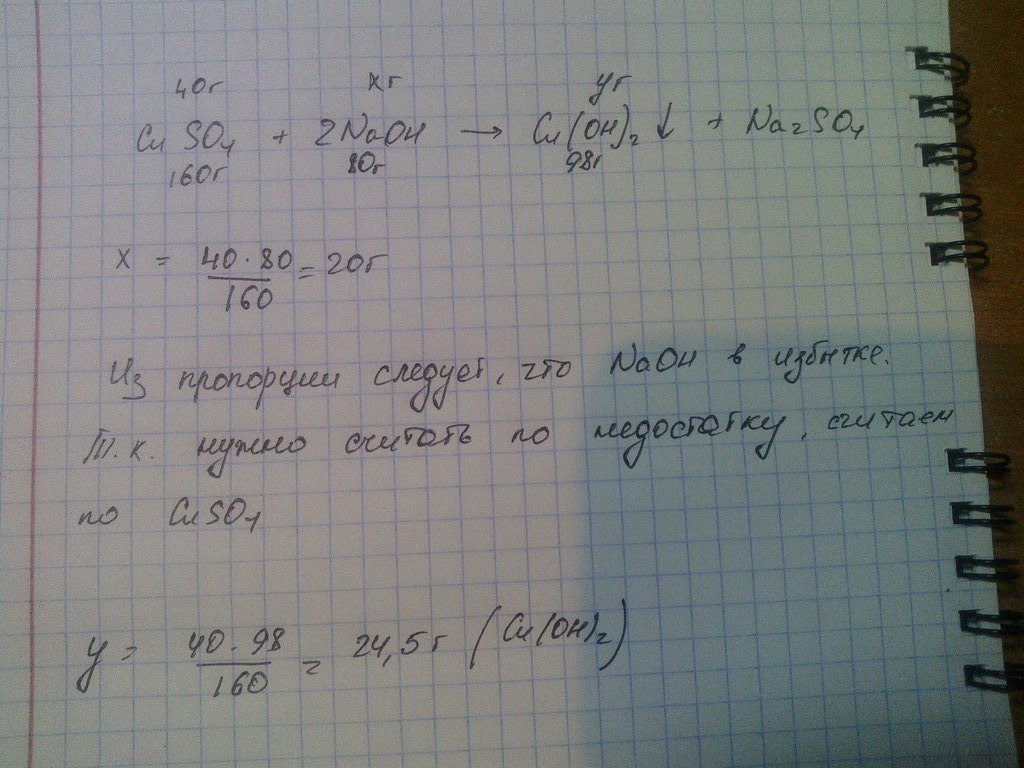 40г хг уг
CuSO4 + 2NaOH → Cu(OH)2↓ + Na2SO4
160г 80г 98г
x = 40·80 = 20г
160
Из пропорции следует, что NaOH в избытке.
Т.к. нужно считать по недостатку, считаем
по CuSO4
y = 40·98 = 24,5г (Cu(OH)2)
160